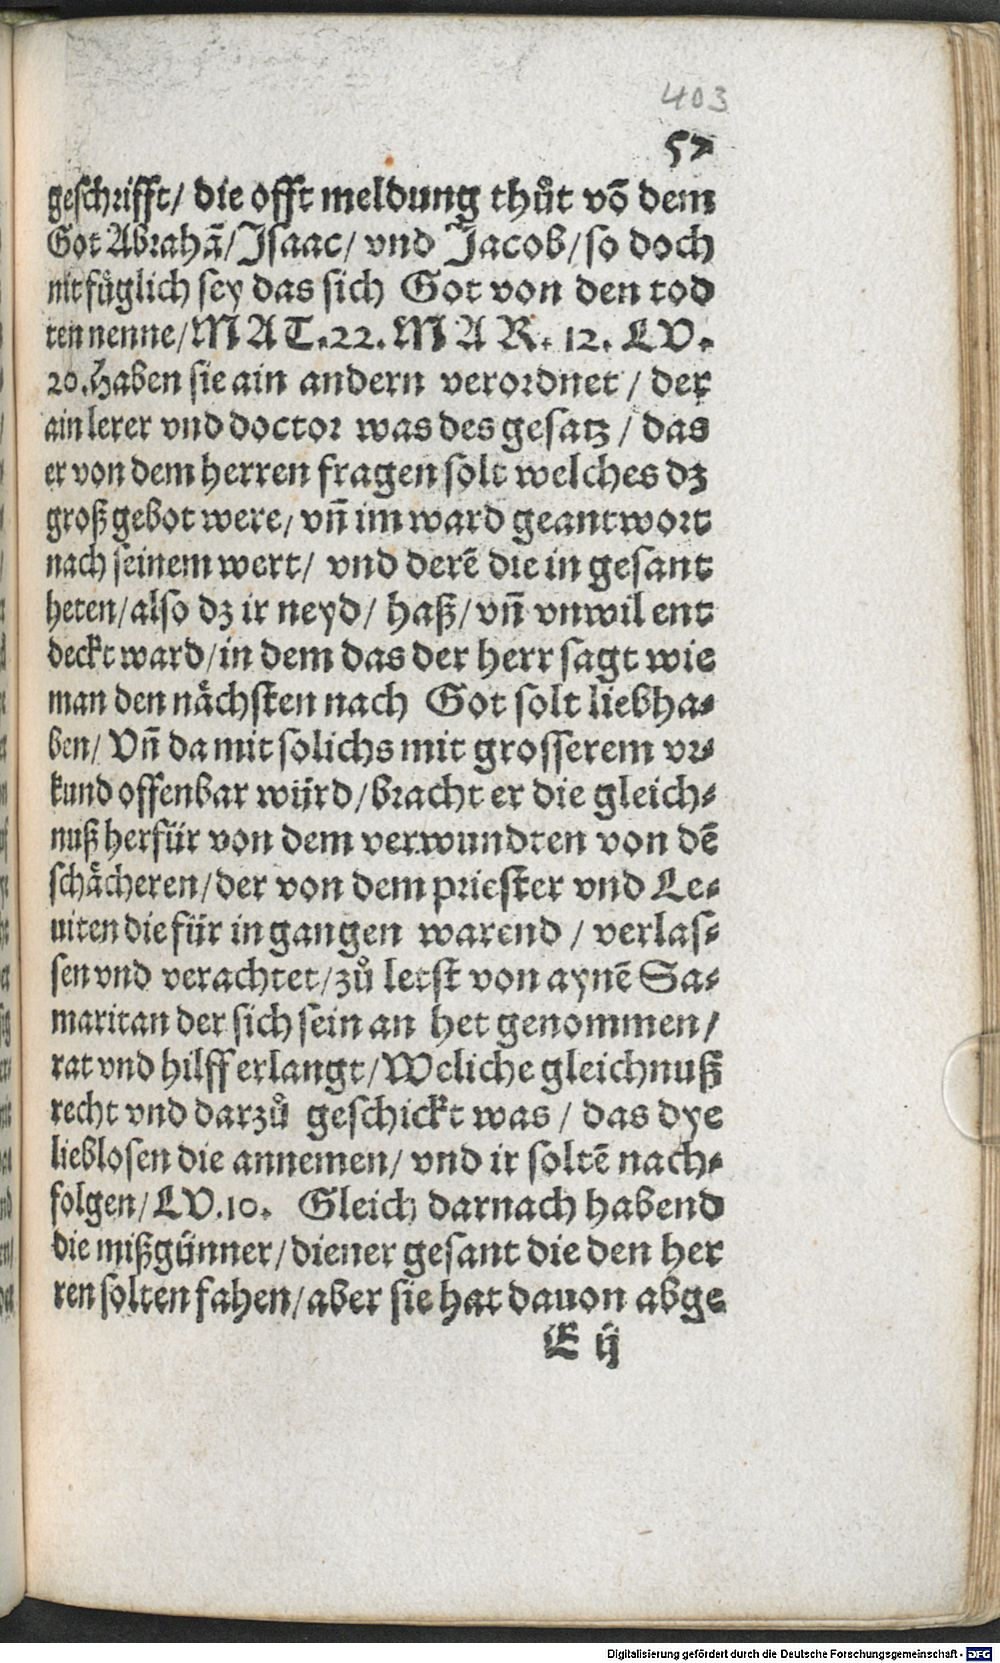 403
57
geschrifft/ die offt meldung thůt võ dem
Got Abrahã/ Isaac/ vnd Jacob/ so doch
nit fůglich sey das sich Got von den tod
ten nenne/ MAT.22. MAR. 12. LV.
20. Haben sie ain andern verordnet / der
ain lerer vnd doctor was des gesatz / das
er von dem herren fragen solt welches dz
groß gebot were/ vñ im ward geantwort
nach seinem wert/ vnd derẽ die in gesant
heten/ also dz ir neyd/ haß/ vñ vnwil ent
deckt ward/ in dem das der herr sagt wie
man den nåchsten nach Got solt liebha⸗
ben/ Vñ da mit solichs mit grosserem vr⸗
kund offenbar würd/ bracht er die gleich⸗
nuß herfür von dem verwundten von dẽ
schåcheren/ der von dem priester vnd Le⸗
uiten die für in gangen warend / verlas⸗
sen vnd verachtet/ zů letst von aynẽ Sa⸗
maritan der sich sein an het genommen/
rat vnd hilff erlangt/ Weliche gleichnuß
recht vnd darzů geschickt was / das dye
lieblosen die annemen/ vnd ir soltẽ nach⸗
folgen/ LV.10. Gleich darnach habend
die mißgünner/ diener gesant die den her
ren solten fahen/ aber sie hat dauon abge
E ij
Digitalisierung gefördert durch die Deutsche Forschungsgemeinschaft - DFG